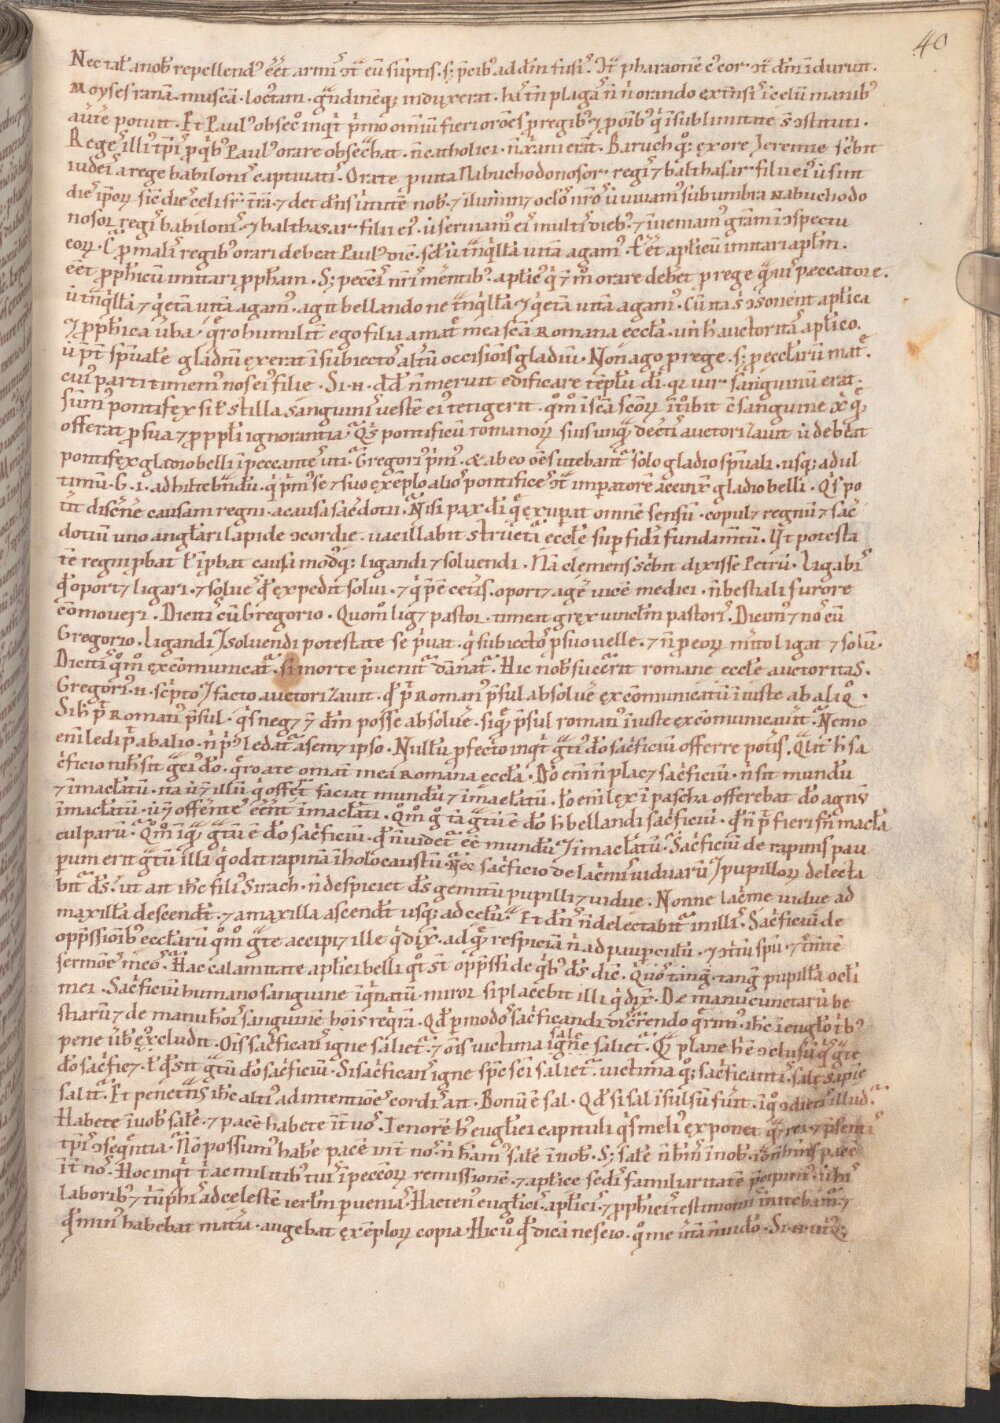 40
Nec tal' a nob' repellend' eēt armis ɔtͣ eū sūptis. s; p̄cib' ad dm̄ fusis. ɔtͣ pharaonē c' cor ɔtͣ dm̄ īduruit.
Moyses ranā. muscā. locͣtam. gͣndinēq; induxerat. hās tn̄ plagas n̄ n' orando extn̄sis ī celū manib'
auͥtͤe potuit. Et Paul' obsecͦ inqͥt pͥmo omniū fieri orōes p regib' ⁊ p oīb' qͥ ī sublimitate s̄t ɔstituti.
Reges illi tp̄is p qͥb' Paul' orare obsecͣbat. n̄ catholici. n̄ xp̄iani erāt. Baruch qͦ; ex ore Jeremie scͥbit
iudeis a rege babilonis captiuatis. Orate p uita Nabuchodonosor regis ⁊ balthasar filii ei' ut sint
dies ip̄oꝝ sic̄ dies celi sr̄ tr̄ā. ⁊ det dn̄s uͥtutē nob'. ⁊ illuminet oclͦos nr̄os ut uiuam' sub umbra nabuchodo
nosor regis babilonis. ⁊ balthasar filii ei'. ut seruiam' eis multis dieb'. ⁊ inueniam' grām ī ɔspectu
eoꝝ. Cͬ p malis regib' orari debeat Paul' dic̄. scl' ut tͣnqͥllā uitā agam'. Eēt aplicū imitari aplm̄.
eēt pphicū imitari ppham. S; pecc̄is nr̄is merentib'. aplic' qͥ ī m̄ orare debet p rege qͣuis peccatore.
ut tͣnqͥllā ⁊ qͥetā uitā agam'. agit bellando ne tͣnqͥllā ⁊ qͥetā uitā agam'. Cū ita s' ɔsonent aplica
⁊ pphica uba. qͣro humilit' ego filia a mat' mea scā Romana eccla. un̄ h' auctoritas aplico.
ut pt' sp̄uale gladiū exerat ī subiectos altū occisiōis gladiū. Non ago p rege. s; p ecclarū mat'.
cui' parti timem' nos ei' filie. Si. n. dd̄ n̄ meruit edificare tēplū dī. qͥ uir sanguinū erat.
sum' pontifex si l' stilla sanguinis ueste ei' tetigerit. qͦmͦ ī scā scōꝝ itͦibit c̄ sanguine xp̄i qͣe
offerat p sua ⁊ p ppl'i ignorantia. Qͥs pontificū romanoꝝ suis unqͣ decͤtis auctorizauit ut debeat
pontifex gladio belli ī peccantes uti. Gregori' pͥm'. & ab eo oēs utebantͬ solo gladio sp̄uali. usq; ad ul
timū. G. i. ad hiltebͣndū. qͥ pͥm' se ⁊ suo exēplo alios pontifices ɔtͣ imperatorē accinxͥt gladio belli. Qͥs po
tͥit discͤn̄e causam regni a causa sac̄dotii. Nisi pax dī qͣe exupat omnē sensū. copulet regnū ⁊ sac̄
dotiū uno anglari lapide ɔcordie. uacillabit structͣa ecclē sup fidei fundam̄tū. Vͭt potesta
tē regni pbat l' īpbat causa modͦq; ligandi ⁊ soluendi. Nā clemens scͥbit dixisse Petrū. Ligabis
qͦd oportet ligari. ⁊ solues qͦd expedit solui. ⁊ qͥ p̄e cet̄is. oportet agͤe uicē medici. n̄ bestiali furore
cōmoueri. Dicit' cū Gregorio. Quom̄ liget pastor. timeat grex uinclm̄ pastoris. Dicim' ⁊ nos cū
Gregorio. Ligandi ⁊ soluendi potestate se pͥuat. qͥ subiectos p suo uelle. ⁊ n̄ p eoꝝ mͥito ligat ⁊ soluit.
Dicitͬ qͦmͦ excōmunicatͬ. si morte p̄uenitͬ dānatͬ. Hic nob' sucͨurit romane eccle auctoritas.
Gregori'. n. scͥpto ⁊ facto auctorizauit. qͦd pͭ Roman' p̄sul absoluē excōmunicatū iniuste ab aliqͦ.
Si h' pͭ Roman' p̄sul. qͥs neget ⁊ dm̄ posse absoluē. siqͦs p̄sul roman' iniuste excōmunicauit. Nemo
eni ledi pͭ ab alio. n̄ pͥ' ledatͬ a semet ipso. Nullū pfecto inqͥt gͣti' dō sacͥficiū offerre potͥs. Qlit' h' sa
cͥficio nih' sit gͣti' dō. qͣro a te o mat' mea Romana eccla. Dō eni n̄ placet sacͥficiū. n̄ sit mundū
⁊ īmaclatū. ita ut ⁊ illū qͥ offert' faciat mundū ⁊ īmaclatū. Io eni lex ī pascha offerebat dō agnū
īmaclatū. ut ⁊ offerentes eēnt īmaclati. Qͦmͦ gͦ tā gͣtū ē dō h' bellandi sacͥficiū. qͦd n̄ pͭ fieri sn̄ macla
culparū. Qͦmͦ iqͣ gͣtū ē dō sacͥficiū. qͦd n̄ uidetͬ eē mundū ⁊ īmaclatū. Sacͥficiū de rapinis pau
perum erit gͣtū illi qͥ odit rapinā ī holocaustū. Nec sacͥficio de lacͥmis uiduarū ⁊ pupilloꝝ delecta
bitͬ d's. ut ait ihc̄ fili' Sirach. n̄ despiciet d's gemitū pupilli ⁊ uidue. Nonne lacͥme uidue ad
maxillā descendūt. ⁊ a maxilla ascendūt usq; ad celū. Et dn̄s n̄ delectabitͬ in illis. Sacͥficiū de
opp̄ssiōib' ecclarū qͦmͦ gͣte accipiet ille qͥ dixͭ. ad qͣe respiciā n̄ ad paupculū. ⁊ ɔtͥtū spū ⁊ tͥm̄te
sermōes meos. Hac calamitate aplici belli qͦt s̄t opp̄ssi de qͥb' d's dic̄. Qͥ uos tangit. tangͭ pupillā ocl'i
mei. Sacͥficiū humano sanguine īqͥnatū. miror si placebit illi qͥ dixͭ. De manu cunctarū be
stiarū ⁊ de manu hoīs sanguinē hoīs reqͥrā. Qd' p modos sacͥficandi discͥrrendo qͥrim'. ihc̄ ī eugl'o tͥb'
pene ūb' excludit. Oīs sacͥficans igne salietͬ. ⁊ oīs uictima igne salietͬ. Qͥ plane h' ē ɔclusū qͥs gͣte
dō sacͥficet. l' qͦd sit gͣtū dō sacͥficiū. Si sacͥficans igne sp̄c sci salietͬ. uictima qͦ; sacͥficantis sale sapīe
salitͬ. Et penet̄ns ihc̄ altius ad intentiōes cordis ait. Bonū ē sal. Qd' si sal īsulsū fuͥit. ī qͦ ɔdietis illud.
Habete ī uob' sale. ⁊ pacē habete īt' uos. Tenorē h' euglici capituli qͥs meli' exponet
tp̄is ɔseqͣntia. Nō possum' habe pacē int' nos. n̄ h'am' sale ī nob'. S; sale n̄ h'em' ī nob'. pacē
īt' nos. Hoc inqͥt tͥ ac militib' tuis ī peccōꝝ remissionē. ⁊ aplice sedis familiaritatē
laborib' ⁊ tͥūphis ad celestē ierlm̄ peuenias. Hacten' euglicis. aplicis. ⁊ pphicis testimoniis
qͦd min' habebat matͥa. augebat exēploꝝ copia. Hic uͦ qͦd dicā nescio. qͦ me uͥtā n̄ uideo.